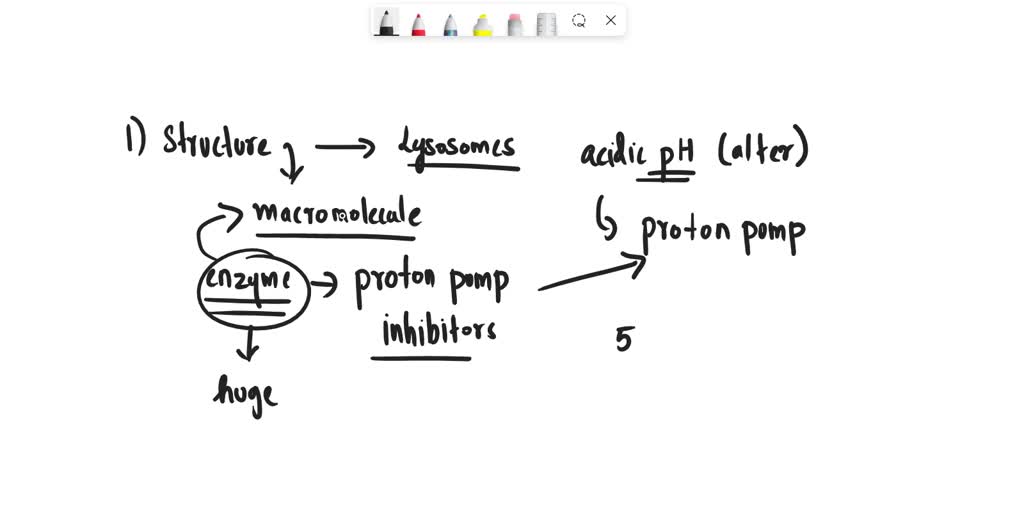 1) Structure → Lysosomes
macromolecule
enzyme → proton pump
inhibitors
huge
acidic pH (alter)
proton pomp
5